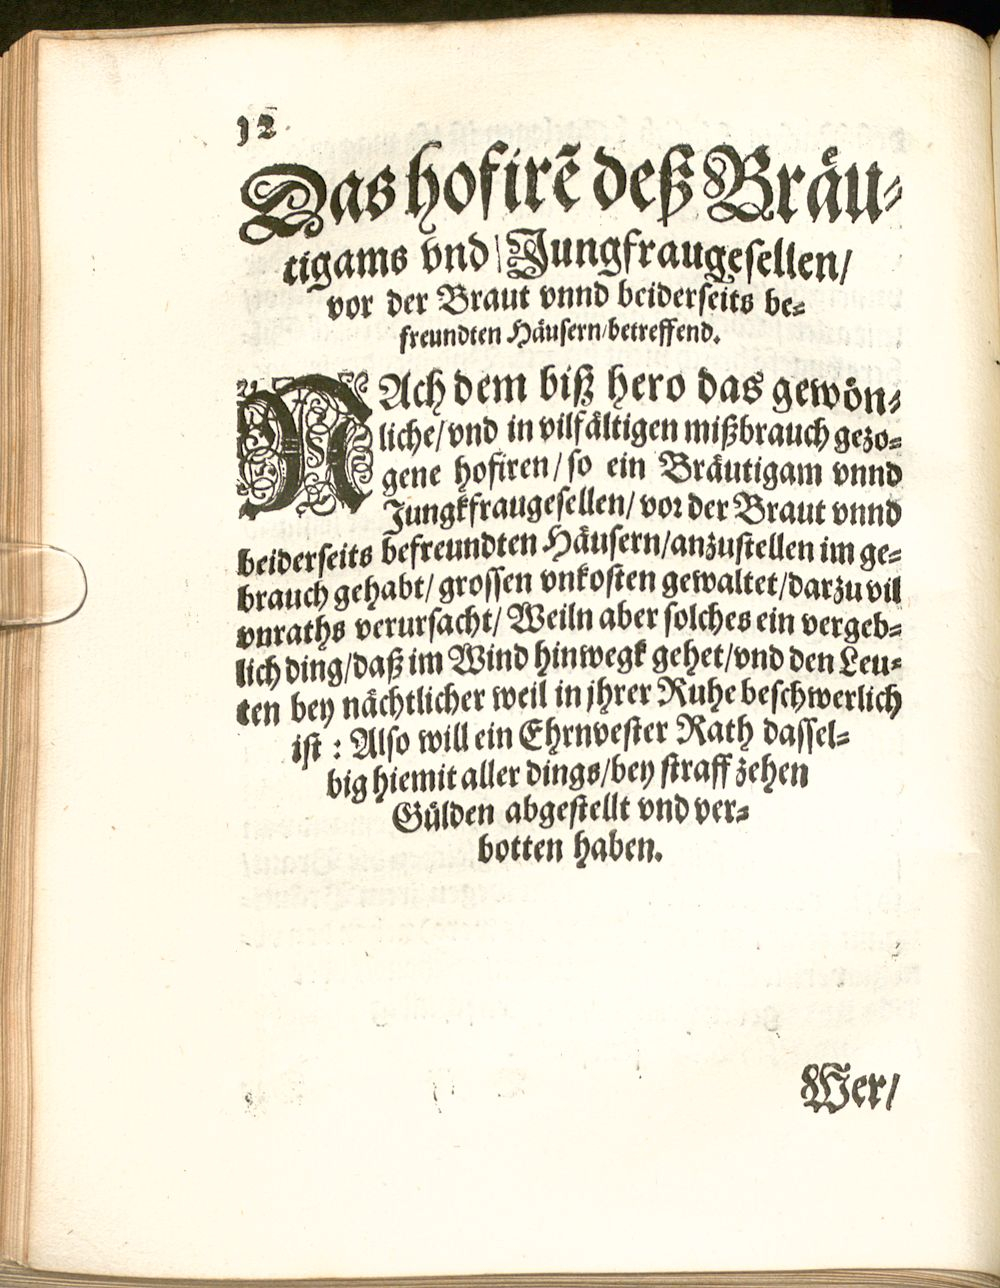 12
Das hofirẽ deß Bräu⸗
tigams vnd Jungfraugesellen/
vor der Braut vnnd beiderseits be⸗
freundten Häusern/betreffend.
NAch dem biß hero das gewön⸗
liche/vnd in vilfältigen mißbrauch gezo⸗
gene hofiren/so ein Bräutigam vnnd
Jungkfraugesellen/vor der Braut vnnd
beiderseits befreundten Häusern/anzustellen im ge⸗
brauch gehabt/grossen vnkosten gewaltet/darzu vil
vnraths verursacht/Weiln aber solches ein vergeb⸗
lich ding/daß im Wind hinwegk gehet/vnd den Leu⸗
ten bey nächtlicher weil in jhrer Ruhe beschwerlich
ist : Also will ein Ehrnvester Rath dassel⸗
big hiemit aller dings/bey straff zehen
Gülden abgestellt vnd ver⸗
botten haben.
Wer/